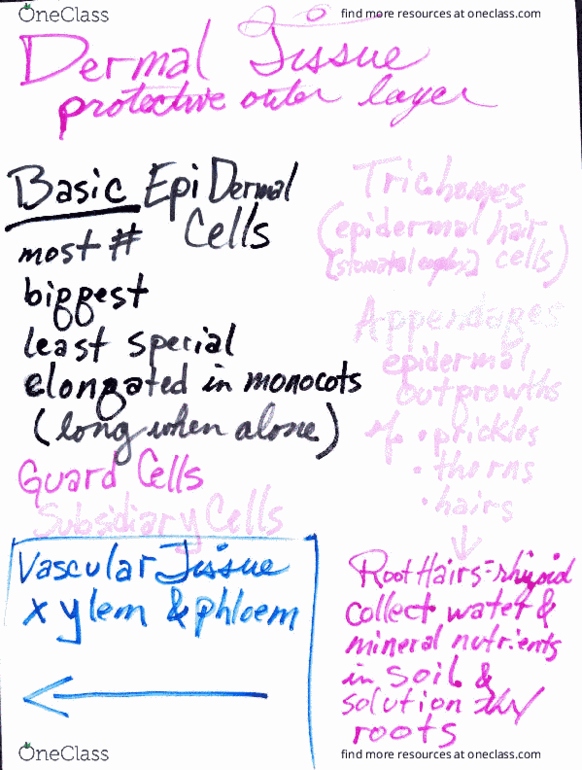 OneClass
find more resources at oneclass.com
Dermal Tissue
protective outer layer
Basic EpiDermal
Cells
most #
biggest
least special
elongated in monocots
(long when alone)
Guard Cells
Subsidiary Cells
Vascular Tissue
xylem & phloem
Trichomes
(epidermal hair
[stomatal complex] cells)
Appendages
epidermal
outgrowths
• prickles
• thorns
• hairs
Root Hairs = rhizoid
collect water &
mineral nutrients
in soil &
solution
roots
OneClass
find more resources at oneclass.com